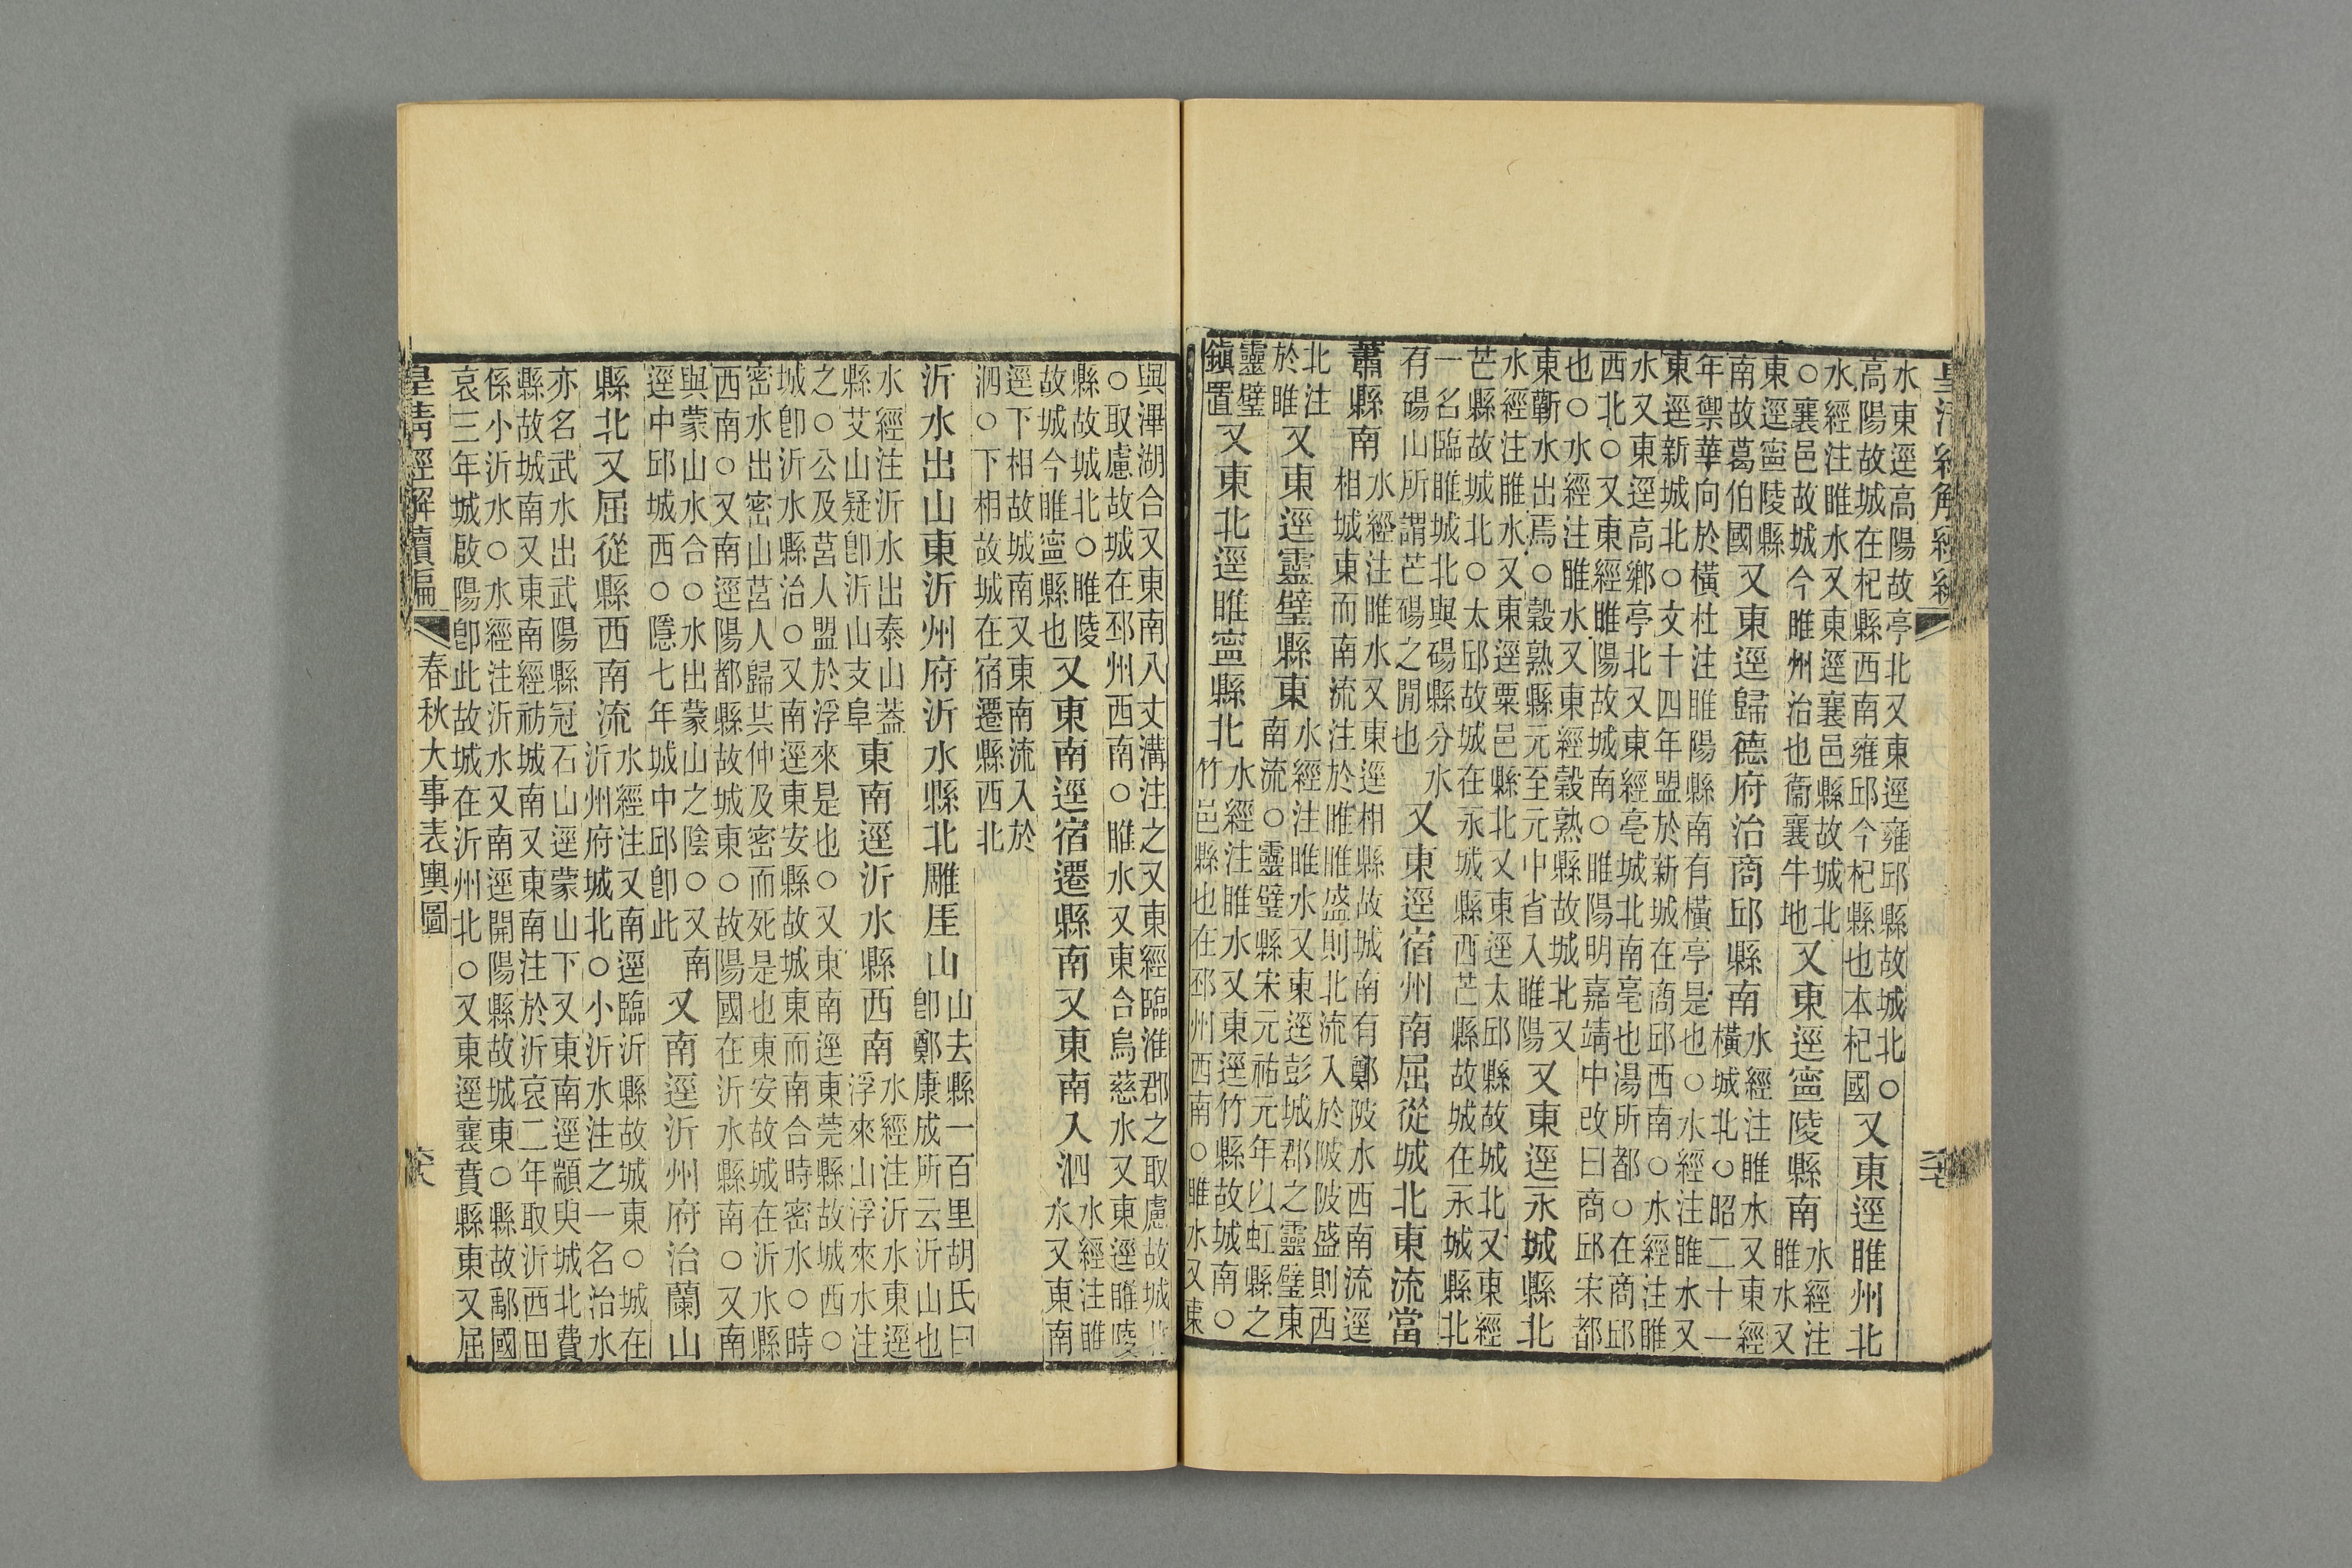 水東逕高陽故亭北又東逕雍邱縣故城北○
高陽故城在杞縣西南雍邱今杞縣也本杞國
又東逕睢州北
水經注睢水又東逕襄邑縣故城北
○襄邑故城今睢州治也衞襄牛地
又東逕寧陵縣南
水經注
睢水又
東逕寧陵縣
南故葛伯國
又東逕歸德府治商邱縣南
水經注睢水又東經
橫城北○昭二十一
年禦華向於橫杜注睢陽縣南有橫亭是也○水經注睢水又
東逕新城北○文十四年盟於新城在商邱西南○水經注睢
水又東逕高鄉亭北又東經亳城北南亳也湯所都○在商邱
西北○又東經睢陽故城南○睢陽明嘉靖中改曰商邱宋都
也○水經注睢水又東經穀熟縣故城北又
東蘄水出焉○穀熟縣元至元中省入睢陽
又東逕永城縣北
水經注睢水又東逕粟邑縣北又東逕太邱縣故城北又東經
芒縣故城北○太邱故城在永城縣西芒縣故城在永城縣北
一名臨睢城北與碭縣分水
有碭山所謂芒碭之閒也
又東逕宿州南屈從城北東流當
蕭縣南
水經注睢水又東逕相縣故城南有鄭陂水西南流逕
相城東而南流注於睢睢盛則北流入於陂陂盛則西
北注
於睢
又東逕靈璧縣東
水經注睢水又東逕彭城郡之靈璧東
南流○靈璧縣宋元祐元年以虹縣之
靈璧
鎮置
又東北逕睢寧縣北
水經注睢水又東逕竹縣故城南○
竹邑縣也在邳州西南○睢水又東
與潬湖合又東南八丈溝注之又東經臨淮郡之取慮故城北
○取慮故城在邳州西南○睢水又東合烏慈水又東逕睢陵
縣故城北○睢陵
故城今睢寧縣也
又東南逕宿遷縣南又東南入泗
水經注睢
水又東南
逕下相故城南又東南流入於
泗○下相故城在宿遷縣西北
沂水出山東沂州府沂水縣北雕厓山
山去縣一百里胡氏曰
卽鄭康成所云沂山也
水經注沂水出泰山葢
縣艾山疑卽沂山支阜
東南逕沂水縣西南
水經注沂水東逕
浮來山浮來水注
之○公及莒人盟於浮來是也○又東南逕東莞縣故城西○
城卽沂水縣治○又南逕東安縣故城東而南合時密水○時
密水出密山莒人歸共仲及密而死是也東安故城在沂水縣
西南○又南逕陽都縣故城東○故陽國在沂水縣南○又南
與蒙山水合○水出蒙山之陰○又南
逕中邱城西○隱七年城中邱卽此
又南逕沂州府治蘭山
縣北又屈從縣西南流
水經注又南逕臨沂縣故城東○城在
沂州府城北○小沂水注之一名治水
亦名武水出武陽縣冠石山逕蒙山下又東南逕顓臾城北費
縣故城南又東南經祊城南又東南注於沂哀二年取沂西田
係小沂水○水經注沂水又南逕開陽縣故城東○縣故鄅國
哀三年城啟陽卽此故城在沂州北○又東逕襄賁縣東又屈
皇清經解續編
春秋大事表輿圖